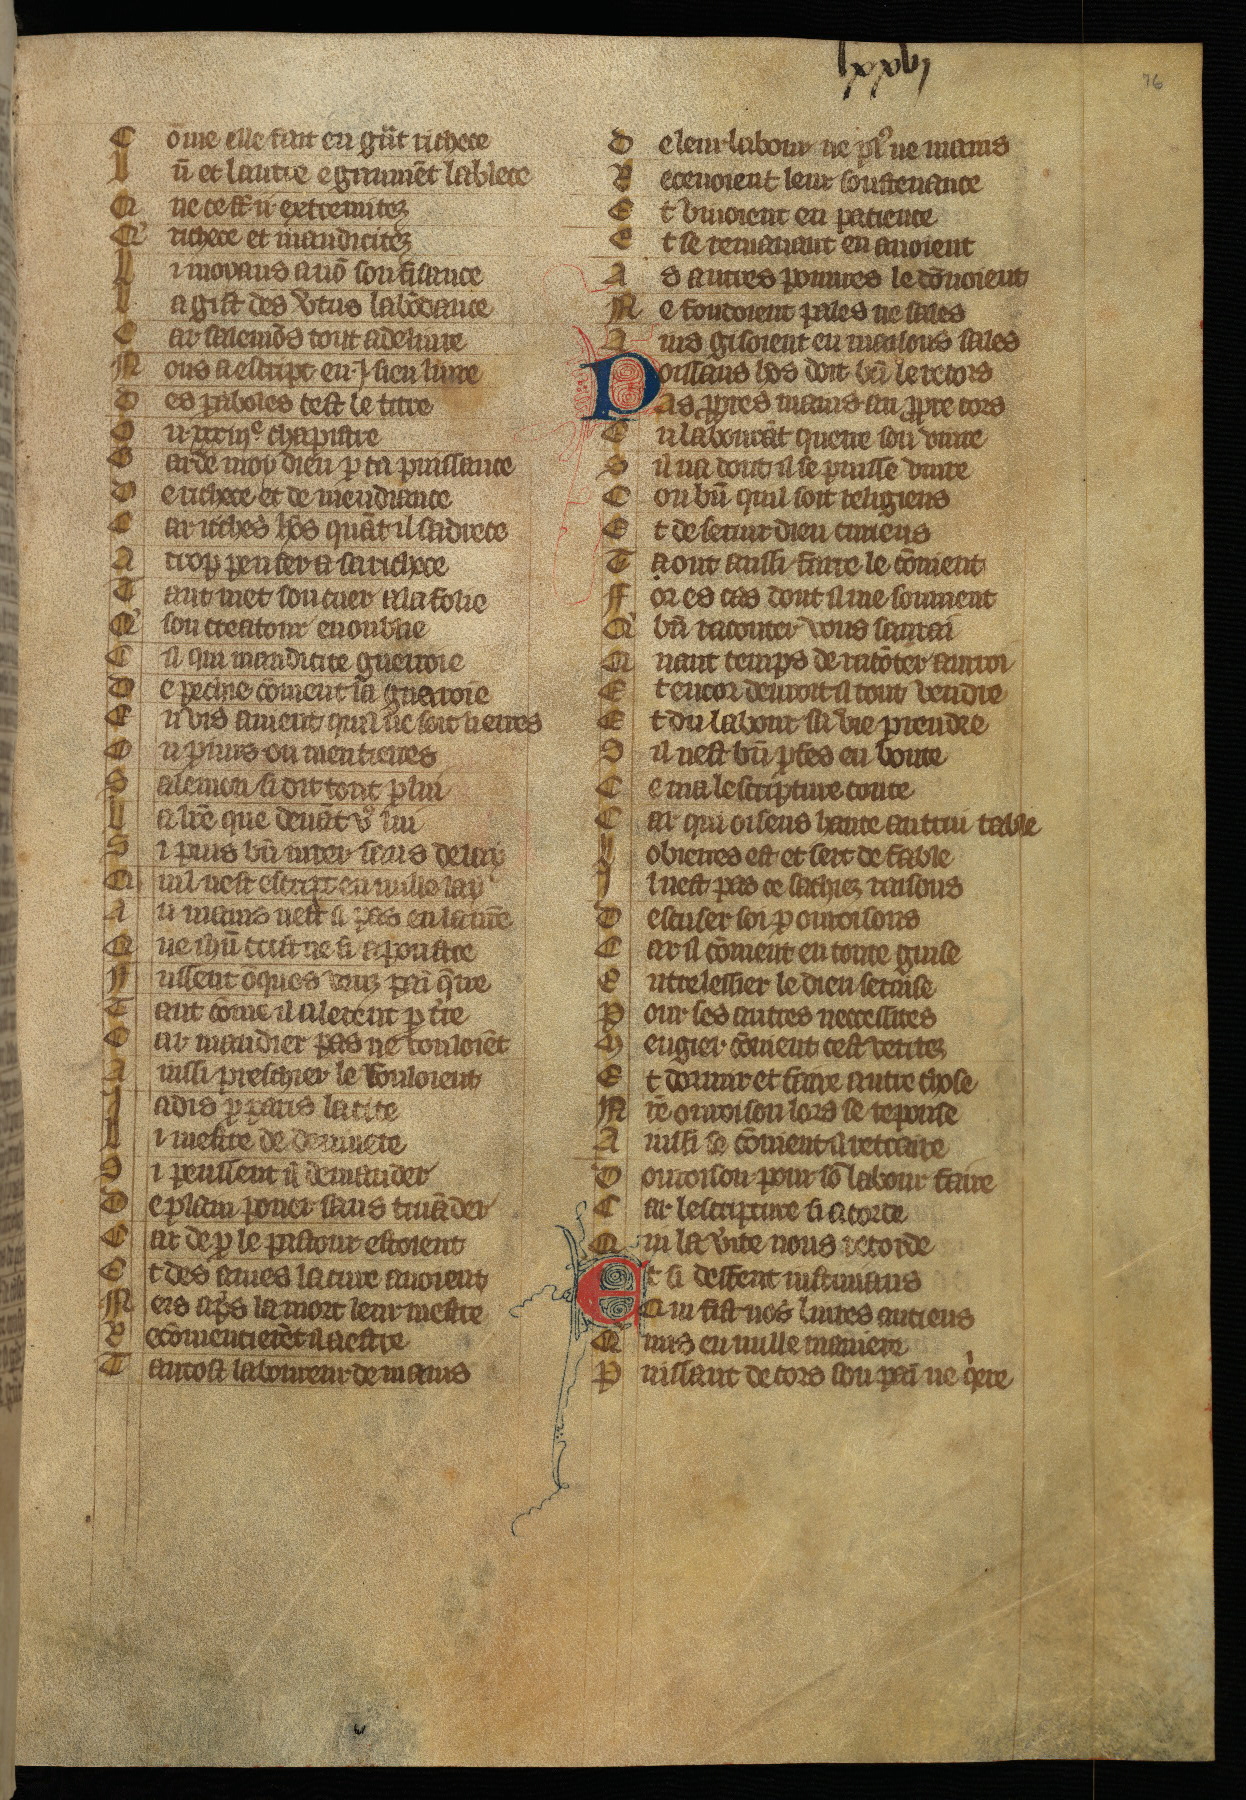 lxxvi
76
C õme elle fait en gñt richece
L ũ et lautre egaumẽt lablece
Q ne ce st ii extremitez
Q' richece et mandicitez
L i moyans a nõ souffisance
L a gist des v'tus labõdance
C ar salemõs tout a deliure
N ous a escript en .j. sien liure
D es paboles cest le titre
D u xxxiiie chapistre
G arde moy dieu p ta puissance
D e richece et de mendiance
C ar riches hõs quãt il sadrece
A trop penser a sa richece
T ant met son cuer a la folie
Q' son creatour en oublie
C il qui mandicite guerroie
D e pechie cõment la guerroie
E nvis auient quil ne soit lierres
O u puurs ou mentierres
S alemon si dit tout p lui
L a lr̃e que deuãt v' lui
S i puis bñ iurer sans delay
Q uil nest escript en nulle lay
A u mains nest il pas en la nr̃e
Q ne ihũ crist ne si apoustre
N ussent õques veuz pai q̃re
T ant cõme il alerent p t're
C ar mandier pas ne vouloiẽt
A inssi preschier le souloient
J adis p paris la cite
L i mestre de deuinite
S i peussent il demander
D e plain pouer sans truãder
C ar de p le pastour estoient
E t des ames la cure auoient
N eis ap̃s la mort leur mestre
R ecõmencierẽt il a estre
T antost laboureur de mains
D e leur labour ne pl' ne mains
R eceuoient leur soustenance
E t viuoient en pacience
E t se remanant en auoient
A s autres pouures le dõnoient
N e fondoient pales ne sales
A ins gisoient en maisons sales
Poissans hõs doit bñ le recors
As ppres mains au ppre cors
E n labourãt querre son viure
S il na dont il se puisse viure
C ou bñ quil soit religiens
E t de seruir dieu curiens
T aont aussi faire le cõuient
F ors es cas dont il me souuient
Q' bñ raconter vous saurai
Q uant temps de racõter aurroi
E t encor deuroit il tout vendre
E t du labour sa vie prendre
S il nest bñ pfes en bonte
C e ma lescripture conte
C ar qui oiseus hante autrui table
L obierres est et sert de fable
J l nest pas ce sachiez raisons
D escuser soi p ouroisons
C ar il cõuient en toute guise
E ntrelessier le dieu seruise
P our ses autres neccessites
M engier cõuient cest veritez
E t dormir et faire autre chose
N r̃e ouroison lors se repouse
A inssi se cõuient il retraire
D ouroison pour sõ labour faire
C ar lescripture si acorde
Q ui la v'ite nous recorde
Et si deffent iustinians
Qui fist nos liures anciens
Q nus en nulle maniere
P uissant de cors son pai ne q'ere